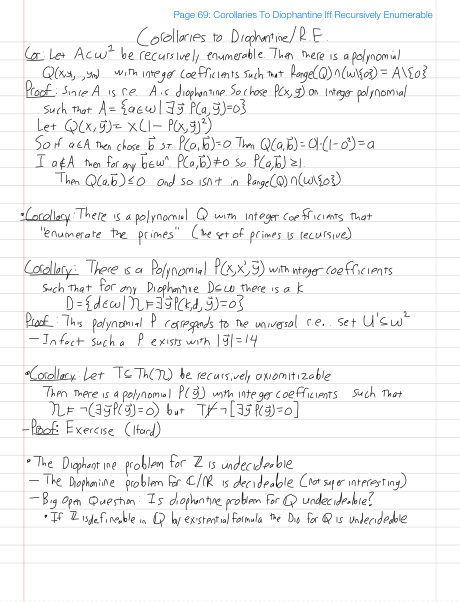 Page 69: Corollaries To Diophantine Iff Recursively Enumerable
Corollaries to Diophantine/R.E.
Cor: Let A⊂ω² be recursively enumerable. Then there is a polynomial
Q(x,y₁,...,yₘ) with integer coefficients such that Range(Q)∩(ω\{0}) = A\{0}
Proof: Since A is r.e. A is diophantine. So chose P(x,ȳ) an integer polynomial
such that A = {a∈ω | ∃ȳ P(a,ȳ)=0}
Let Q(x,ȳ) = x(1-P(x,ȳ)²)
So if a∈A then chose b̄ s.t. P(a,b̄)=0. Then Q(a,b̄) = a·(1-0²)=a
I a∉A then for any b̄∈ωⁿ P(a,b̄)≠0 so P(a,b̄)≥1.
Then Q(a,b̄)≤0 and so isn't in Range(Q)∩(ω\{0})
•Corollary: There is a polynomial Q with integer coefficients that
"enumerate the primes" (the set of primes is recursive)
Corollary: There is a Polynomial P(x,x',ȳ) with integer coefficients
such that for any Diophantine D⊆ω there is a k
D = {d∈ω | 𝒩⊨∃ȳ P(k,d,ȳ)=0}
Proof: This polynomial P corresponds to the universal r.e. set U'⊆ω²
- In fact such a P exists with |ȳ|=14
•Corollary: Let T⊆Th(𝒩) be recursively axiomitizable
Then there is a polynomial P(ȳ) with integer coefficients such that
𝒩⊨¬(∃ȳ P(ȳ)=0) but T⊬¬[∃ȳ P(ȳ)=0]
- Proof: Exercise (Hard)
• The Diophantine problem for ℤ is undecideable
- The Diophantine problem for ℂ/ℝ is decideable (not super interesting)
- Big Open Question: Is diophantine problem for ℚ undecideable?
• If ℤ is defineable in ℚ by existential formula the Dio for ℚ is undecideable